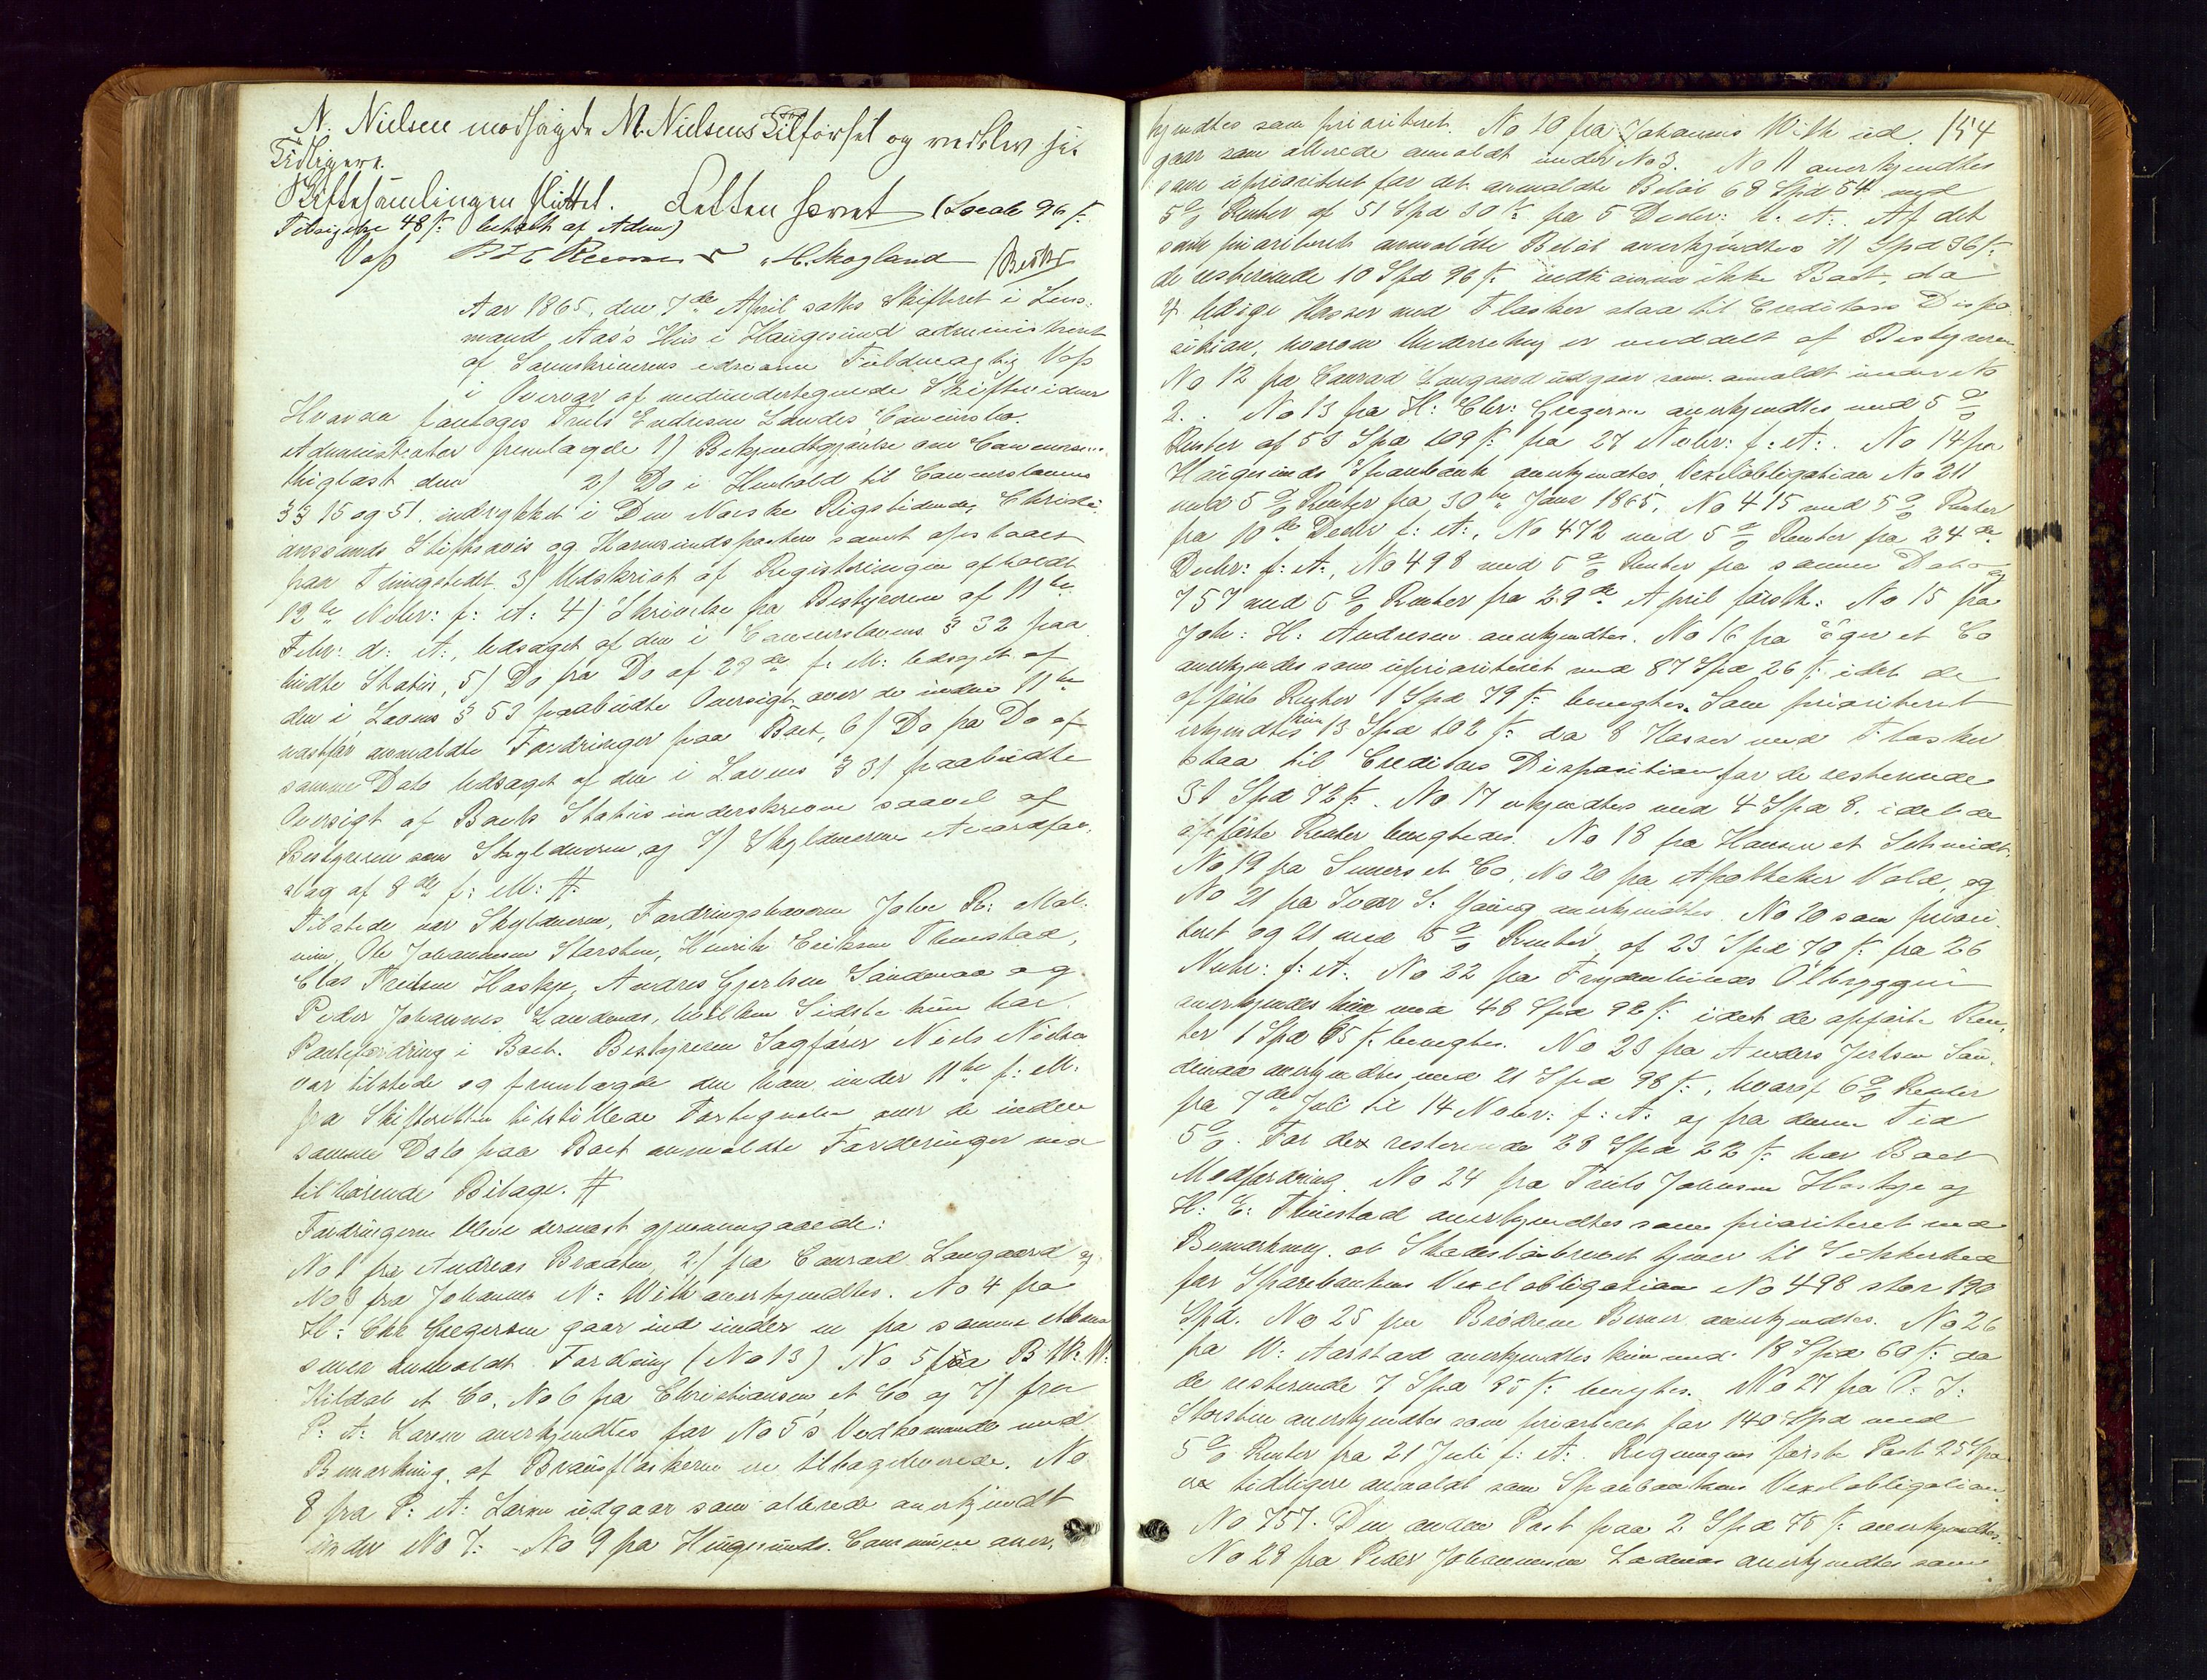 N. Nielsen modsagde M. Nielsens Tilførsel og vedblev sit
Tidligere.
Skiftesamlingen sluttet. Retten hævet (Locale 96 ß
Tilsigelse 48 ß betalt af Adm)
Vosz Skogland
Aar 1865, den 7de April sattes Skifteret i Lens-
mand Aas's Hus i Haugesund administreret
af Sorenskriverens edsvorne Fuldmægtig Vosz
i Overvær af medundertegnede Skiftevidner
Hvorda foretoges Truls Endresen Landes Concursbo.
Administrator fremlagde 1) Bekjendtgjørelse om Concursen
thinglæst den 2) Do i Henhold til Concurslovens
§§ 15 og 51. indrykket i Den Norske Rigstidende, Christi-
anssands Stiftsavis og Karmsundsposten samt opslaaet
paa Thingstedet. 3) Udskrift af Registreringen afholdt
12te Novbr: f: A: 4) Skrivelse fra Bestyreren af 11te
Febr: d: A:, ledsaget af den i Concurslovens § 32 paa
budte Status, 5) Do fra Do af 28de f: M: ledsaget af
den i Lovens § 53 paabudte Oversigt over de inden 11te
næstfør anmeldte Fordringer paa Boet, 6) Do fra Do af
samme Dato ledsaget af den i Lovens § 31 paabudte
Oversigt af Boets Status underskreven saavel af
Bestyreren som Skyldneren, og 7) Skyldnerens Accordfor-
slag af 8de f: M: #
Tilstede var Skyldneren, Fordringshaverne John R: Mal-
min, Ole Johannesen Storsten, Henrik Eriksen Thuestad,
Clas Trulsen Haskje, Andres Gjertsen Søndenaa og
Peder Johannes. Landenes, hvilken Sidste kun har
Pantefordring i Boet. Bestyreren Sagfører Niels Nielsen
var tilstede og fremlagde den ham under 11te f: M:
fra Skifteretten tilstillede Fortegnelse over de inden
samme Dato paa Boet anmeldte Fordringer med
tilhørende Bilage. #
Fordringerne bleve dernæst gjennemgaaede:
No 1 fra Andreas Braaten, 2) fra Conrad Langaard og
No 3 fra Johannes N: With anerkjendtes. No 4 fra
H: Chr Gregersen gaar ind under en fra samme Mand
senere anmeldt Fordring (No 13) No 5 fra B
Kildal et Co, No 6 fra Christiansen et Co og 7) fra
P: A: Larsen anerkjendtes for No 5's Vedkommende med
Bemærkning, at Brusflaskerne ere tilbageleverede. No
8 fra P: A: Larsen udgaar som allerede anerkjendt
under No 7: - No 9 fra Haugesunds Commune aner-
154
kjendtes som prioriteret. No 10 fra Johannes With ud-
gaar som allerede anmeldt under No 3. No 11 anerkjendtes
som uprioriteret for det anmeldte Beløb 68 Spd 54 med
5 % Renter af 51 Spd 30 ß fra 5 Decbr: f: A:. Af det
som prioriteret anmeldte Beløb anerkjendtes 11 Spd 36 ß:
de resterende 10 Spd 96 ß vedkommer ikke Boet, da
ledige Kasser med Flasker staa til Creditors Dispo-
sition, hvorom Underretning er meddelt af Bestyreren
No 12 fra Conrad Langaard udgaar som anmeldt under No
2. No 13 fra H: Chr: Gregersen anerkjendtes med 5 %
Renter af 53 Spd 109 ß: fra 27 Novbr: f: A:. No 14 fra
Haugesunds Sparebank anerkjendtes, Vexelobligation No 211
med 5 % Renter fra 30te Janr 1865. No 415 med 5 % Renter
fra 10de Decbr f: A:, No 472 med 5 % Renter fra 24de
Decbr: f: A:, No 498 med 5 % Renter fra samme Dato og
757 med 5 % Renter fra 29de April førstk: No 15 fra
Joh: H: Andresen anerkjendtes. No 16 fra Eger et Co
anerkjendes som uprioriteret med 87 Spd 26 ß: idet de
opførte Renter 1 Spd 79 ß: benegtes. Som prioriteret
erkjendtes kun 13 Spd 102 ß: da 8 Kasser med Flasker
staa til Creditors Disposition for de resterende
31 Spd 72 ß. No 17 erkjendtes med 4 Spd 8. idet de
opførte Renter benegtedes. No 18 fra Hansen et Schmidt,
No 19 fra Sumers et Co, No 20 fra Apotheker Vold, og
No 21 fra Ivar S: Young anerkjendtes. No 20 som priori-
teret og 21 med 5 % Renter af 23 Spd 70 ß: fra 26
Novbr: f: A: No 22 fra Frydenlunds Ølbryggeri
anerkjendes kun med 48 Spd 98 ß: idet de opførte Ren-
ter 1 Spd 65 ß: benegtes. No 23 fra Anders Jertsen Søn-
denaa anerkjendtes med 21 Spd 98 ß:, hvoraf 6 % Renter
fra 7de Juli til 14 Novbr: f: A: og fra denne Tid
5 %. For det resterende 28 Spd 22 ß: har Boet
Modfordring. No 24 fra Truls Johnsen Haskje og
H: E: Thuestad anerkjendtes som prioriteret med
Bemærkning, at Skadesløsbrevet tjener til Sikkerhed
for Sparebankens Vexelobligation No 498 stor 190
Spd. No 25 fra Brødrene Berner anerkjendtes. No 26
fra W: Aarstad anerkjendtes kun med 18 Spd 60 ß: da
de resterende 7 Spd 35 ß: benegtes. No 27 fra O: J:
Storsten anerkjendtes som prioriteret for 140 Spd med
5 % Renter fra 21 Juli f: A:. Regningens første Post 25 Spd
er tidligere anmeldt som Sparebankens Vexelobligation
No 757. Den anden Post paa 2 Spd 75 ß: anerkjendtes.
No 28 fra Peder Johannesen Ladenes anerkjendtes som